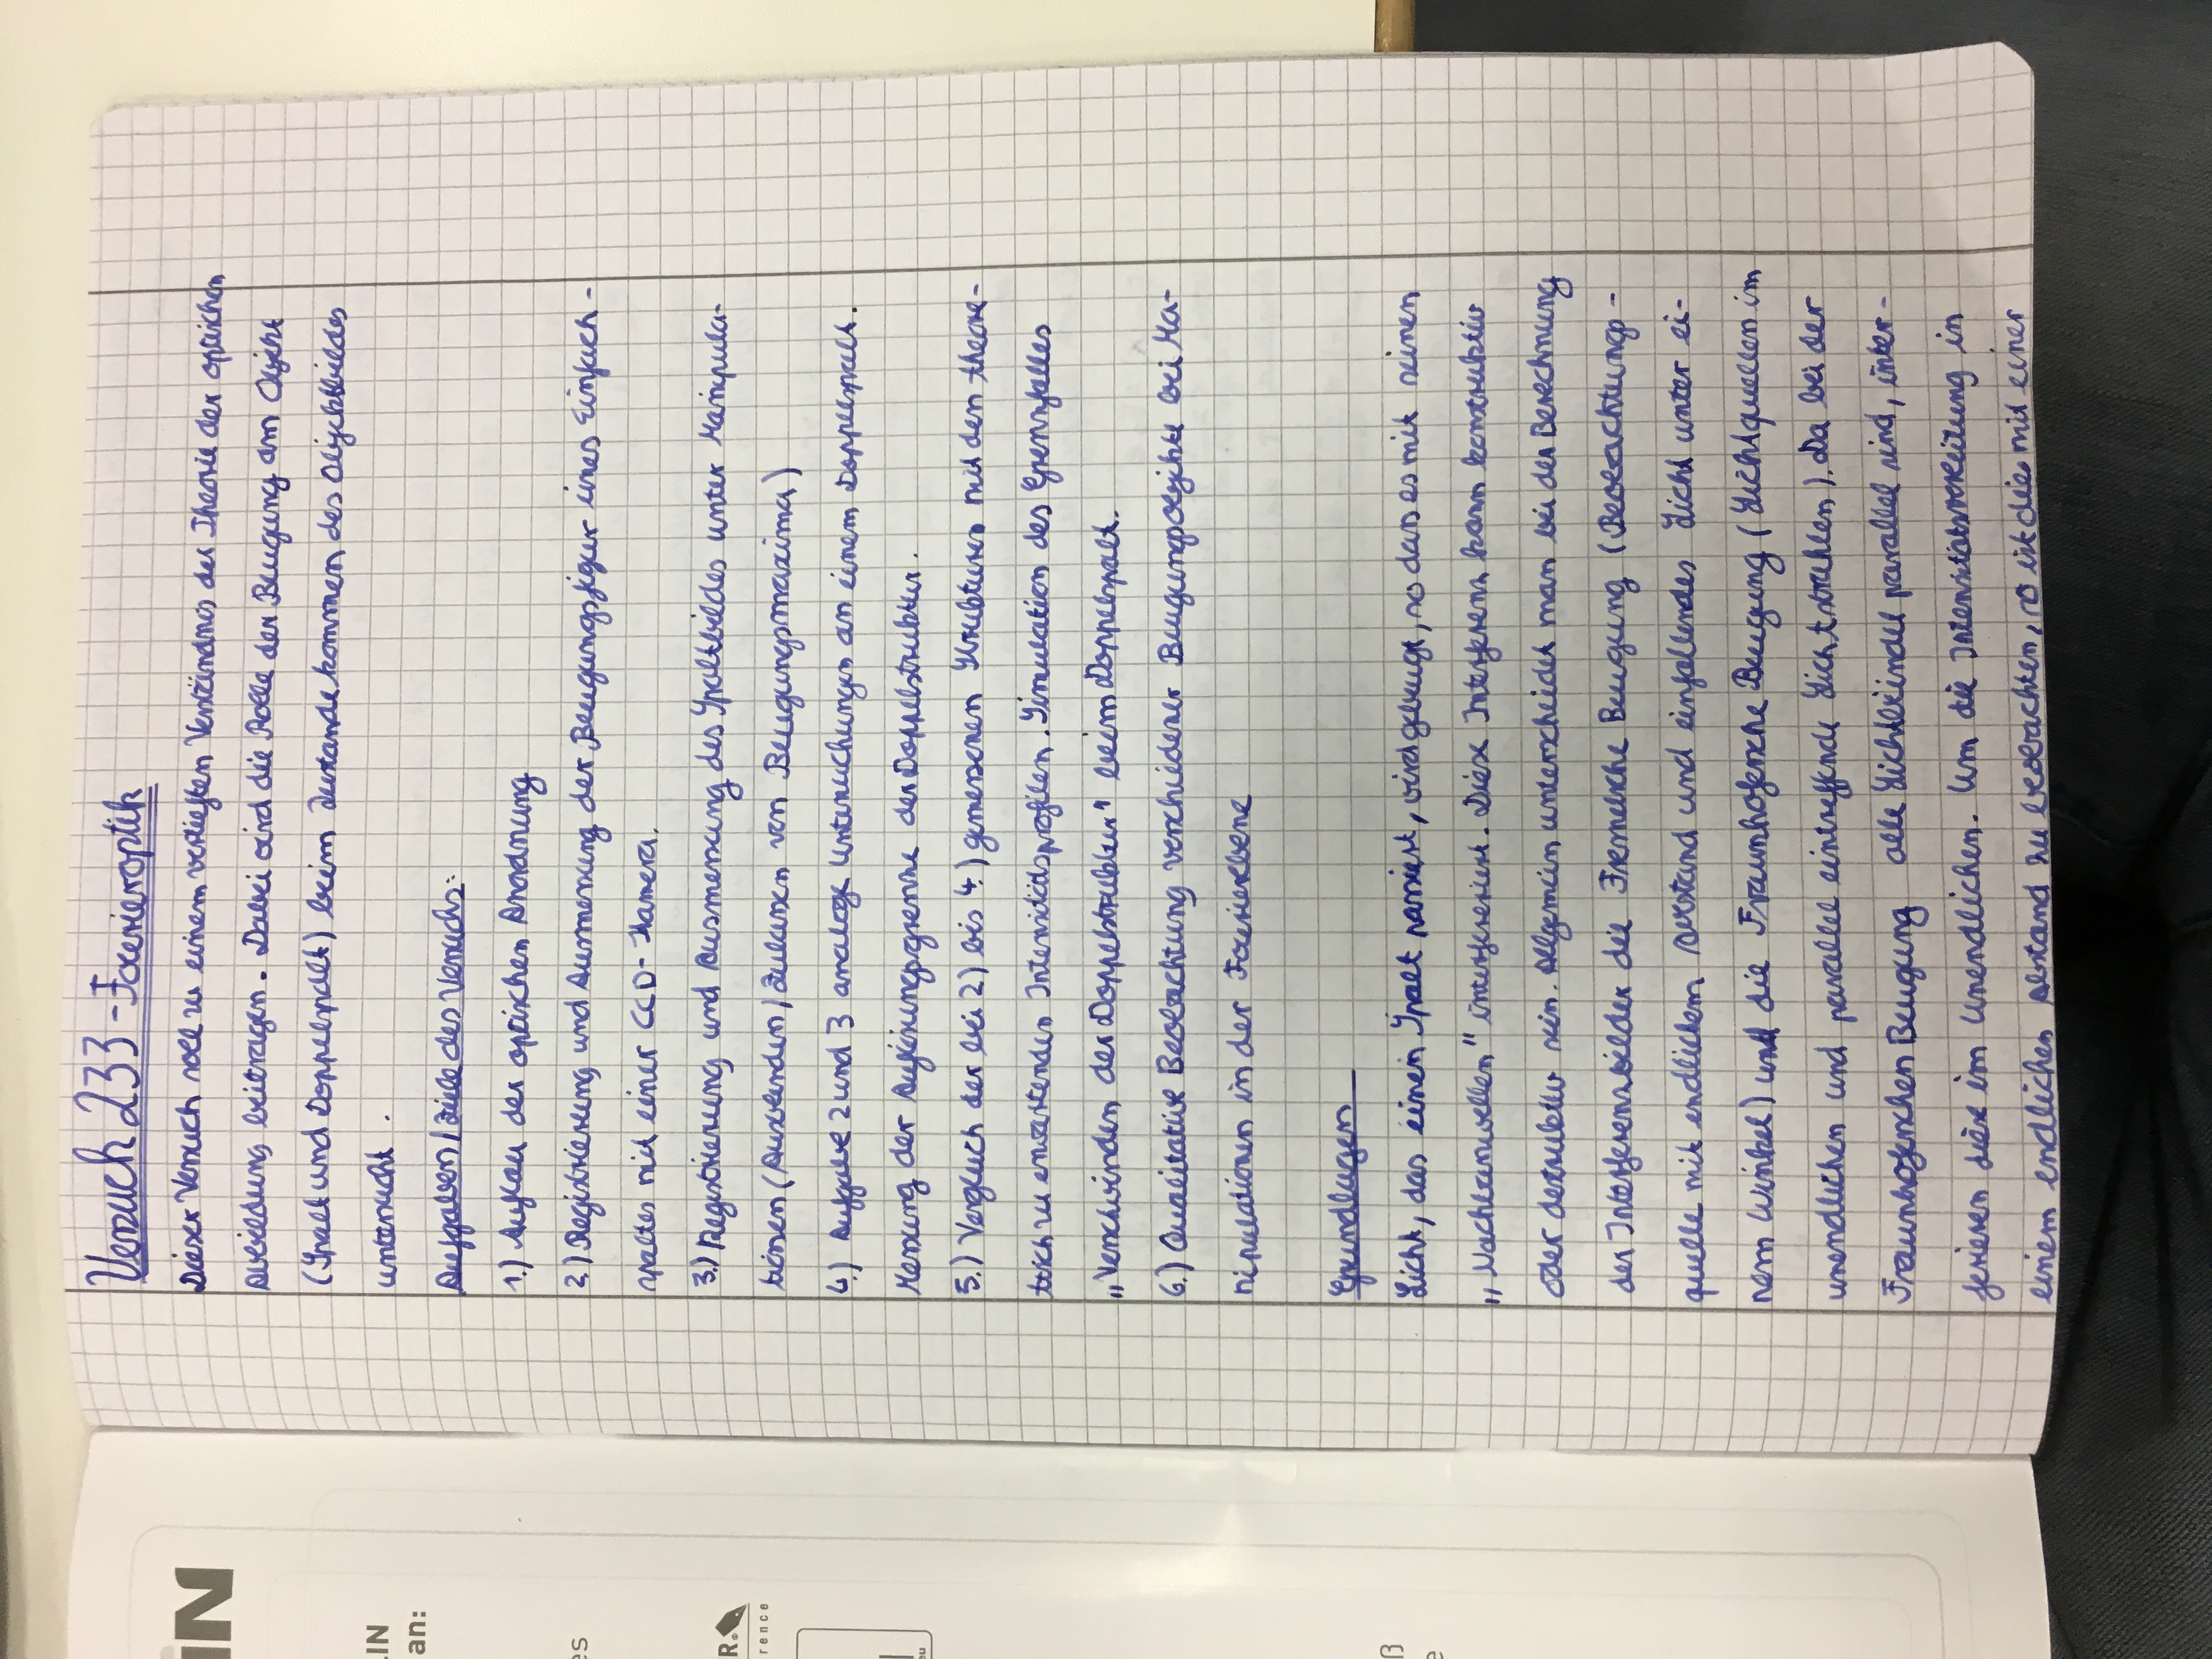 iN
.IN
an:
es
R.
rence
eu
ß
e
Versuch 233 - Fourieroptik
Dieser Versuch soll zu einem vertieften Verständnis der Theorie der optischen
Abbildung beitragen. Dabei wird die Rolle der Beugung am Objekt
(Spalt und Doppelspalt) beim Zustandekommen des Objektbildes
untersucht.
Aufgaben / Ziele des Versuchs:
1.) Aufbau der optischen Anordnung
2.) Registrierung und Ausmessung der Beugungsfigur eines Einfach-
spaltes mit einer CCD-Kamera.
3.) Registrierung und Ausmessung des Spaltbildes unter Manipula-
tionen (Ausblenden / Zulassen von Beugungsmaxima)
4.) Aufgabe 2 und 3 analoge Untersuchungen an einem Doppelspalt.
Messung der Auflösungsgrenze der Doppelstruktur.
5.) Vergleich der bei 2) bis 4.) gemessenen Strukturen mit den theore-
tisch zu erwartenden Intensitätsprofilen. Simulation des Grenzfalles
„Verschwinden der Doppelstruktur" beim Doppelspalt.
6.) Qualitative Beobachtung verschiedener Beugungsobjekte bei Ma-
nipulationen in der Fourierebene
Grundlagen
Licht, das einen Spalt passiert, wird gebeugt, so dass es mit seinen
„Nachbarwellen" interfereriert. Diese Interferenz kann konstruktiv
oder destruktiv sein. Allgemein unterscheidet man bei der Berechnung
der Interferenzbilder die Fresnelsche Beugung (Beobachtungs-
quelle mit endlichem Abstand und einfallendes Licht unter ei-
nem Winkel) und die Fraunhofersche Beugung (Lichtquellen im
unendlichen und parallel eintreffende Lichtstrahlen). Da bei der
Fraunhoferschen Beugung alle Lichtbündel parallel sind, inter-
ferieren diese im Unendlichen. Um die Intensitätsverteilung in
einem endlichen Abstand zu beobachten, so ist dies mit einer